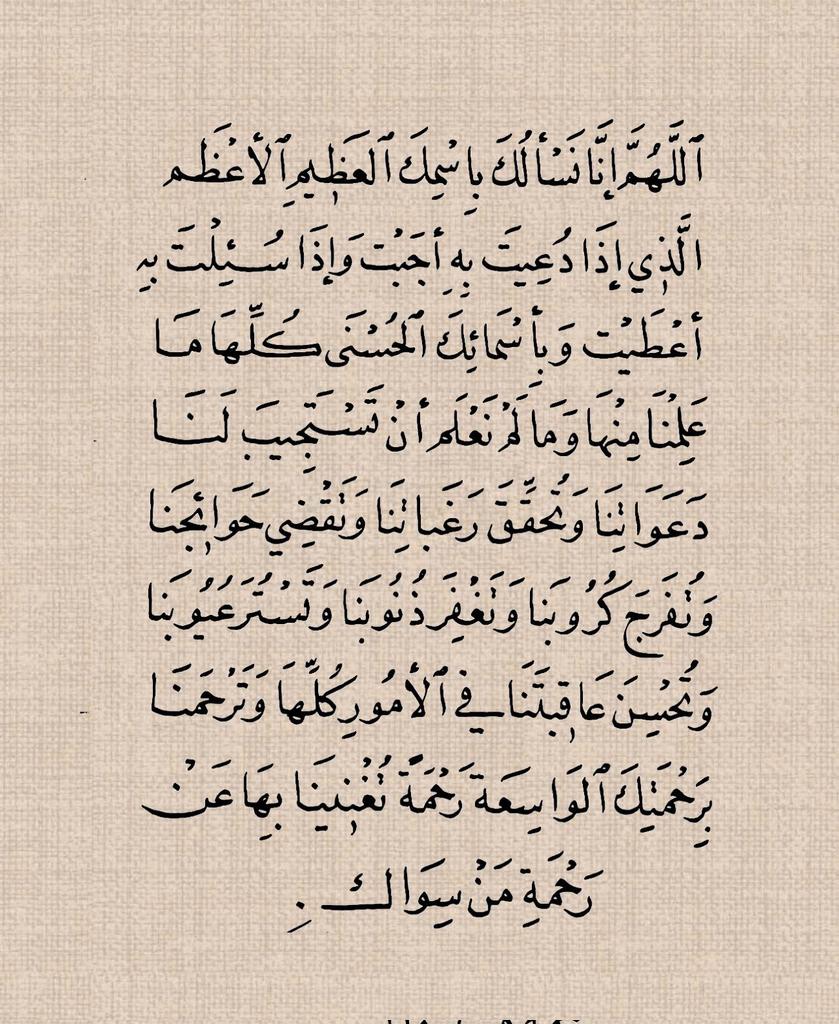 ٱللَّهُمَّ إِنَّا نَسْأَلُكَ بِاسْمِكَ ٱلعَظِيمِ ٱلأَعْظَم
الَّذِي إِذَا دُعِيتَ بِهِ أَجَبْتَ وَإِذَا سُئِلْتَ بِهِ
أَعْطَيْتَ وَبِأَسْمَائِكَ ٱلحُسْنَى كُلِّهَا مَا
عَلِمْنَا مِنْهَا وَمَا لَمْ نَعْلَم أَنْ تَسْتَجِيبَ لَنَا
دَعَوَاتِنَا وَتُحَقِّقَ رَغَبَاتِنَا وَتَقْضِي حَوَائِجَنا
وَتُفَرِجَ كُرُوبَنا وَتَغْفِرَ ذُنُوبَنا وَتَسْتُرَ عُيُوبَنا
وَتُحْسِنَ عَاقِبَتَنَا فِي ٱلأُمُورِ كُلِّهَا وَتَرْحَمَنَا
بِرَحْمَتِكَ ٱلوَاسِعَة رَحْمَةً تُغْنِينَا بِهَا عَنْ
رَحْمَةِ مَنْ سِوَاك .